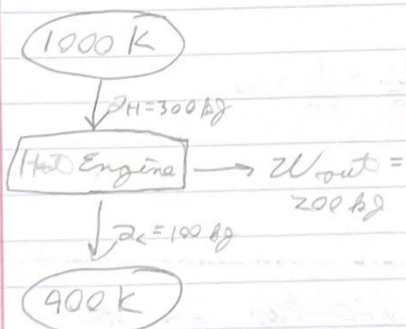 1000 K
QH=300 kJ
Heat Engine → Wout =
200 kJ
Qc=100 kJ
400 K